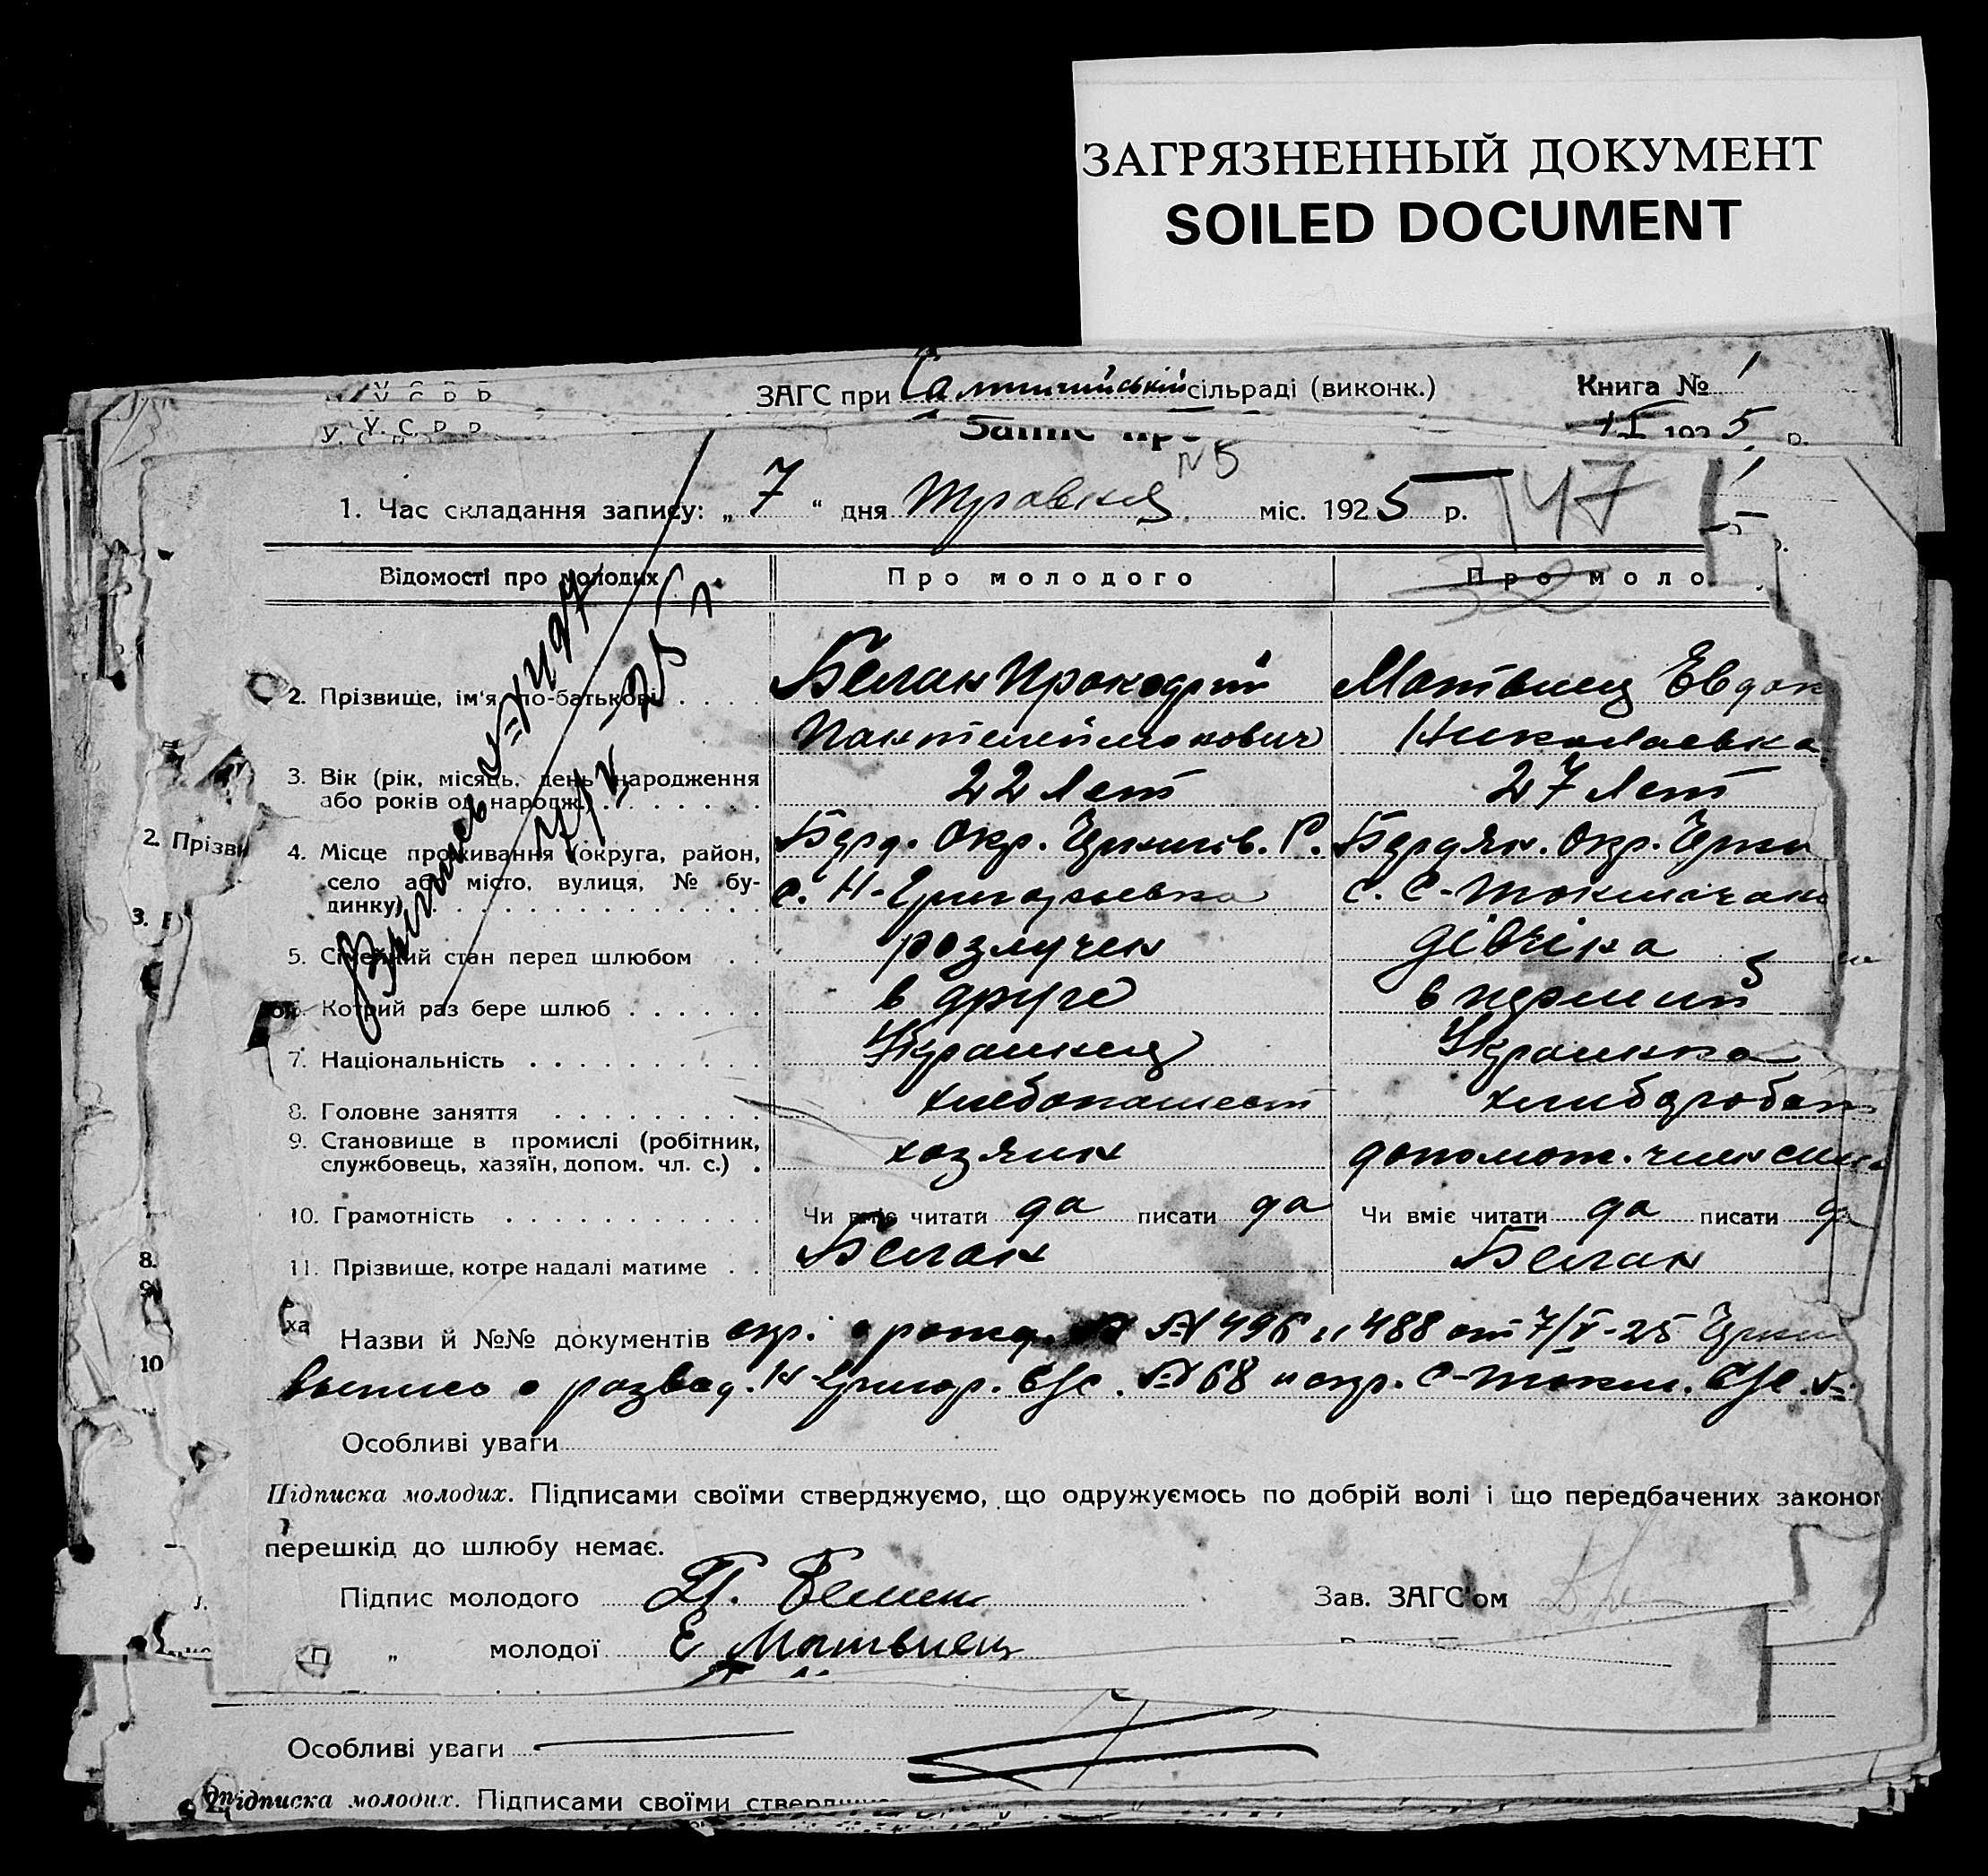 ЗАГРЯЗНЕННЫЙ ДОКУМЕНТ
SOILED DOCUMENT
У. С. Р. Р.
ЗАГС при сільраді (виконк.)
Книга № 1
У. С. Р. Р.
192 5 р.
№ 5
1. Час складання запису: „ 7 “ дня Травня міс. 192 5 р.
147
Відомості про молодих
Про молодого
Про моло
32
2. Прізвище, ім'я, по-батькові
Белан Прокофий
Матвиец Евдок
Пантелеймонович
Николаевка
3. Вік (рік, місяць, день народження
або років од народж.)
22 Лет
27 Лет
4. Місце проживання (округа, район,
село або місто, вулиця, № бу-
динку)
Берд. Окр. Р.
Бердян. Окр.
с. Н-Григорьевка
с. С-Токмачан
5. Сімейний стан перед шлюбом
розлучен
дівчіна
6. Котрий раз бере шлюб
в друге
в перший
7. Національність
Украинец
Украинка
8. Головне заняття
хлебопашест
хлибороб
9. Становище в промислі (робітник,
службовець, хазяїн, допом. чл. с.)
хозяин
допомож. член
10. Грамотність
Чи вміє читати да писати да
Чи вміє читати да писати да
11. Прізвище, котре надалі матиме
Белан
Белан
Назви й №№ документів № 496 и 488 от 7/V-25
выпись о развод. Н-Григор. № 68 и С-Токм.
Особливі уваги
Підписка молодих. Підписами своїми стверджуємо, що одружуємось по добрій волі і що передбачених законом
перешкід до шлюбу немає.
Підпис молодого П. Белан
Зав. ЗАГС'ом
„ молодої Е Матвиец
Особливі уваги
Підписка молодих. Підписами своїми
2. Прізви
3.
8.
9.
10